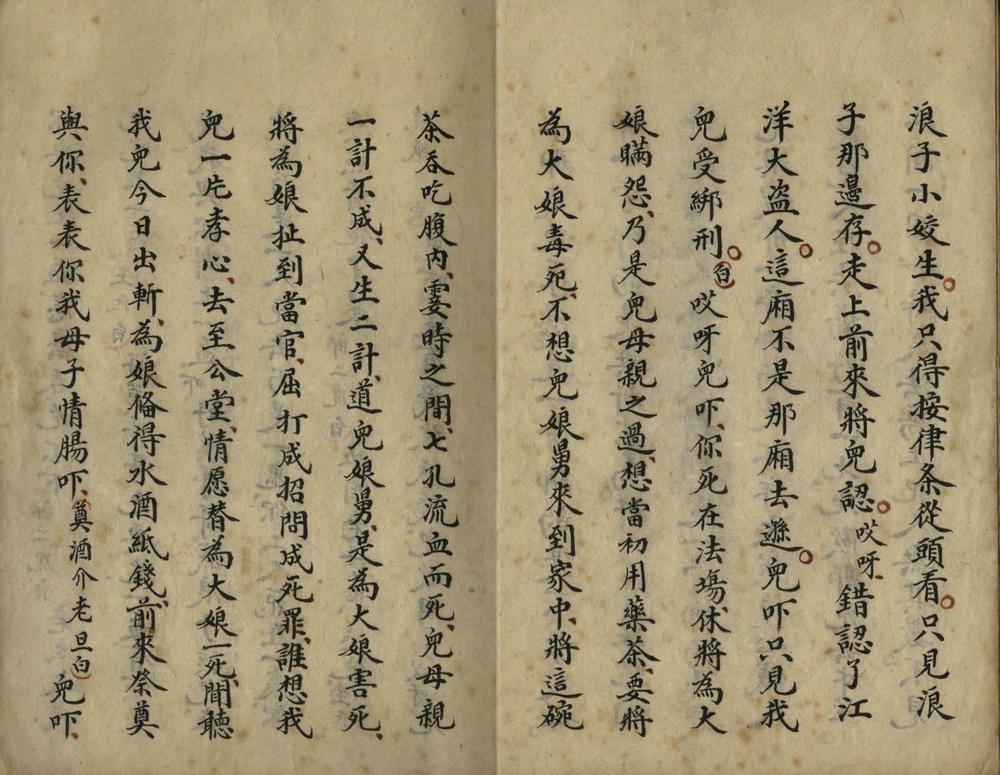 浪子小姣生。我只得按律条從頭看。只見浪
子那邉存。走上前來將兒認。哎呀、錯認了江
洋大盗人。這廂不是那廂去遜。兒吓只見我
兒受綁刑。白 哎呀兒吓、你死在法塲、休將為大
娘瞞怨、乃是兒母親之過、想當初用藥茶、要將
為大娘毒死、不想兒娘舅來到家中、將這碗
茶吞吃腹内、霎時之間、七孔流血而死、兒母親
一計不成、又生二計、道兒娘舅、是為大娘害死、
將為娘扯到當官、屈打成招、問成死罪、誰想我
兒一片孝心、去至公堂、情愿替為大娘一死、聞聽
我兒今日出斬、為娘俻得水酒紙錢、前來祭奠
與你、表表你我母子情腸吓、奠酒介 老旦白 兒吓、